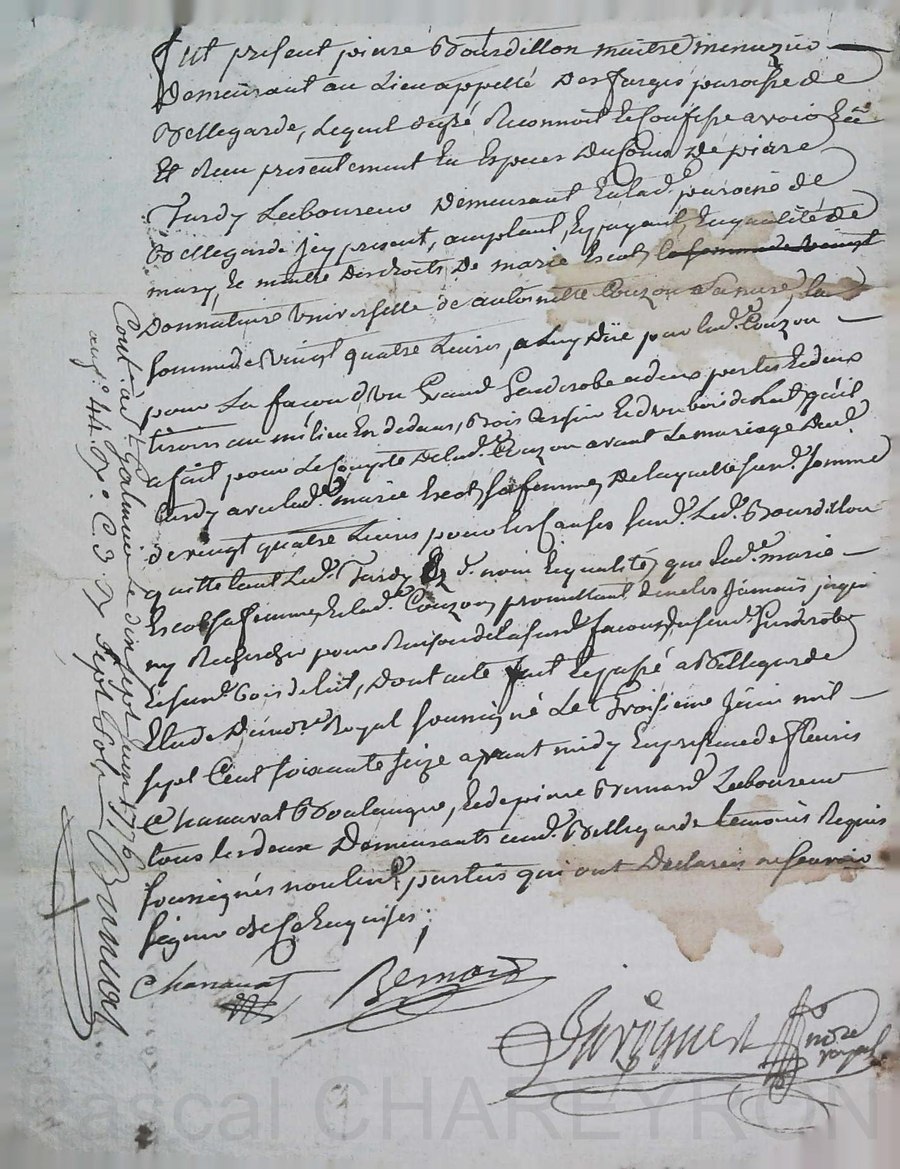 fut présent piere Bourdillon maitre menuzier
Demeurant au Lieu appellé Des farges paroisse de
Bellegarde, Lequel degré Reconnoit et Confesse avoir
Et Reçu presentement En Especes Du Cours De piere
Tardy Laboureur Demeurant En lad.e paroisse de
Bellegarde jcy present, acceptant, Et payant, En qualité de
mary, Et maitre des droits De marie Escot,
Donnataire universelle de antoinette Couzon sa mere, la
somme de vingt quatre Livres, a Luy Düe par lad.e Couzon
pour La façon d'un Grand Garderobe a deux portes Et deux
tirons au milieu En dedans, Bois Et d'un bois de Lit, qu'il
a fait pour Le Compte De lad.e Couzon avant Le mariage Dud.
Tardy avec lad.e marie Escot sa femme, De laquelle sud.e somme
de vingt quatre Livres pour les Causes sud.es Led. Bourdillon
quitte tant Led. Tardy d. nom Et qualité, que lad.e marie
Escot sa femme, Et lad.e Couzon, promettant de ne les Jamais
ny Rechercher pour Raison de la sud.e façon, du sud. Garderobe
Et sud. bois de lit, Dont acte fait Et passé a Bellegarde
Etude Du no.re Royal soussigné Le Troisieme Juin mil
sept Cent soixante seize avant midy En presence de fleuris
Chanavat Boulanger, Et de piere Bernard Laboureur
tous les deux Demeurants aud. Bellegarde temoins Requis
soussignés non les parties qui ont Declarés ne sçavoir
signer de Ce Enquises;
Chanavat
Bernard
no.re
royal
Cont.lé à St Galmier le dix sept Juin 1776
Reçu
Pascal CHAREYRON